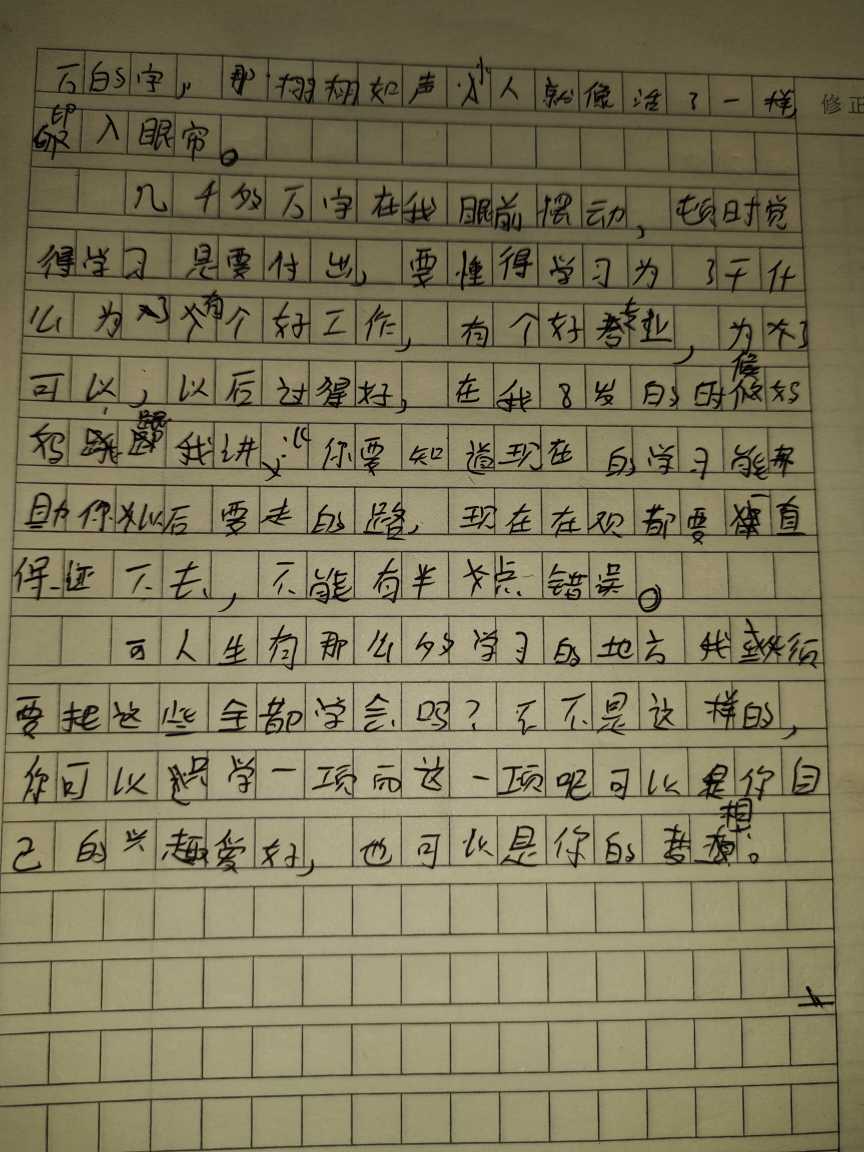 万的字，那栩栩如声小人就像活了一样，
印入眼帘。
几千多万字在我眼前摆动，顿时觉
得学习是要付出，要懂得学习为了干什
么为了有个好工作，有个好专业，为了
可以，以后过得好，在我8岁的时候妈
妈跟我讲：“你要知道现在的学习能帮
助你以后要走的路，现在在观都要一直
保证下去，不能有半点错误。
可人生有那么多学习的地方我必须
要把这些全都学会吗？不是这样的，
你可以只学一项而这一项呢可以是你自
己的兴趣爱好，也可以是你的梦想。
修正